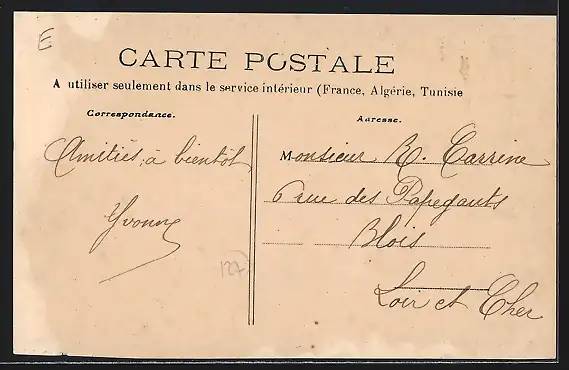 E
CARTE POSTALE
A utiliser seulement dans le service intérieur (France, Algérie, Tunisie
Correspondance.
Adresse.
Amitiés, à bientôt
Yvonne
127
Monsieur R. Carrine
6 rue des Papegauts
Blois
Loir et Cher